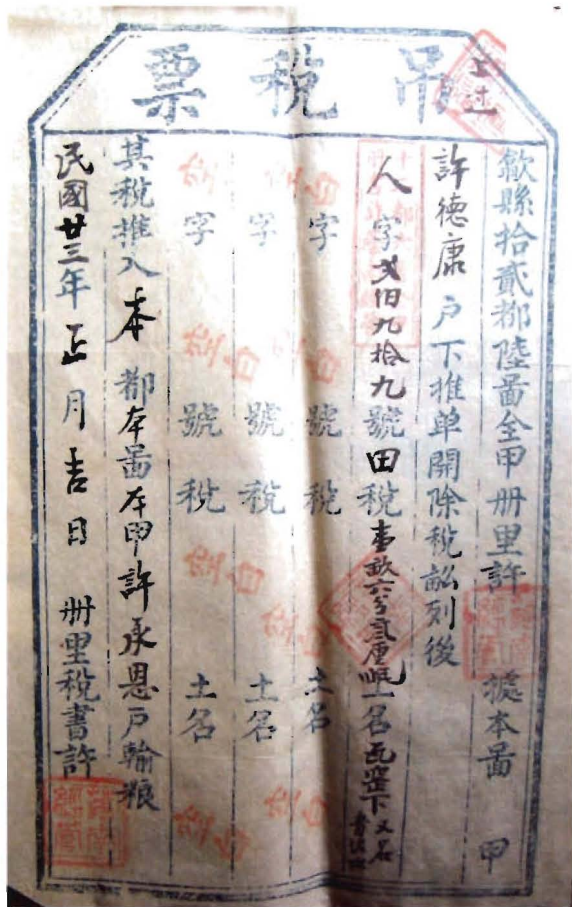 吊稅票
歙縣拾貳都陸啚全甲册里許 據本啚 甲
許德康戶下推单開除稅畝列後
人字弍伯九拾九號田稅壹畝六分弍厘 土名瓦窑下又名
字 號稅 土名
字 號稅 土名
字 號稅 土名
其稅推入本都本啚本甲許承恩戶輸粮
民國廿三年正月吉日 册里稅書許